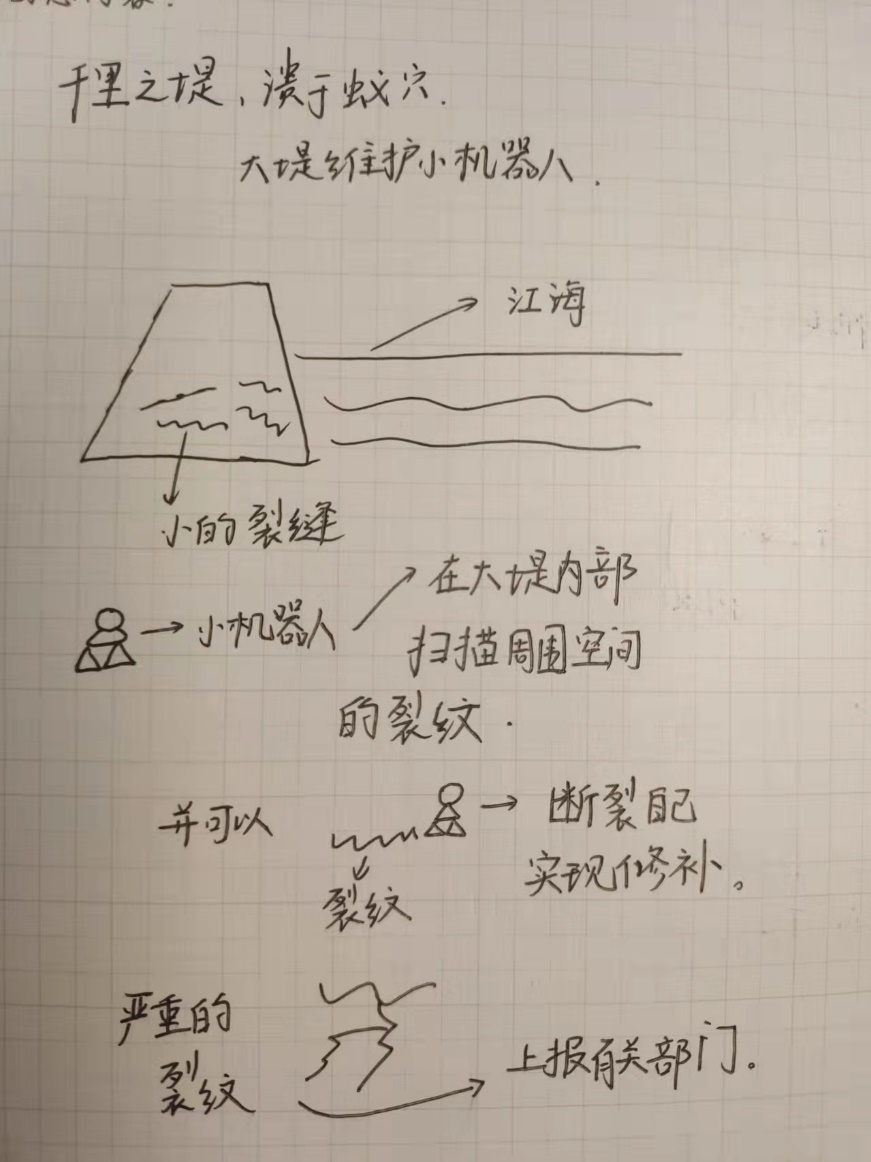 千里之堤,溃于蚁穴.
大堤维护小机器人.
江海
小的裂缝
小机器人
在大堤内部
扫描周围空间
的裂纹.
并可以
断裂自己
实现修补。
裂纹
严重的
裂纹
上报有关部门。